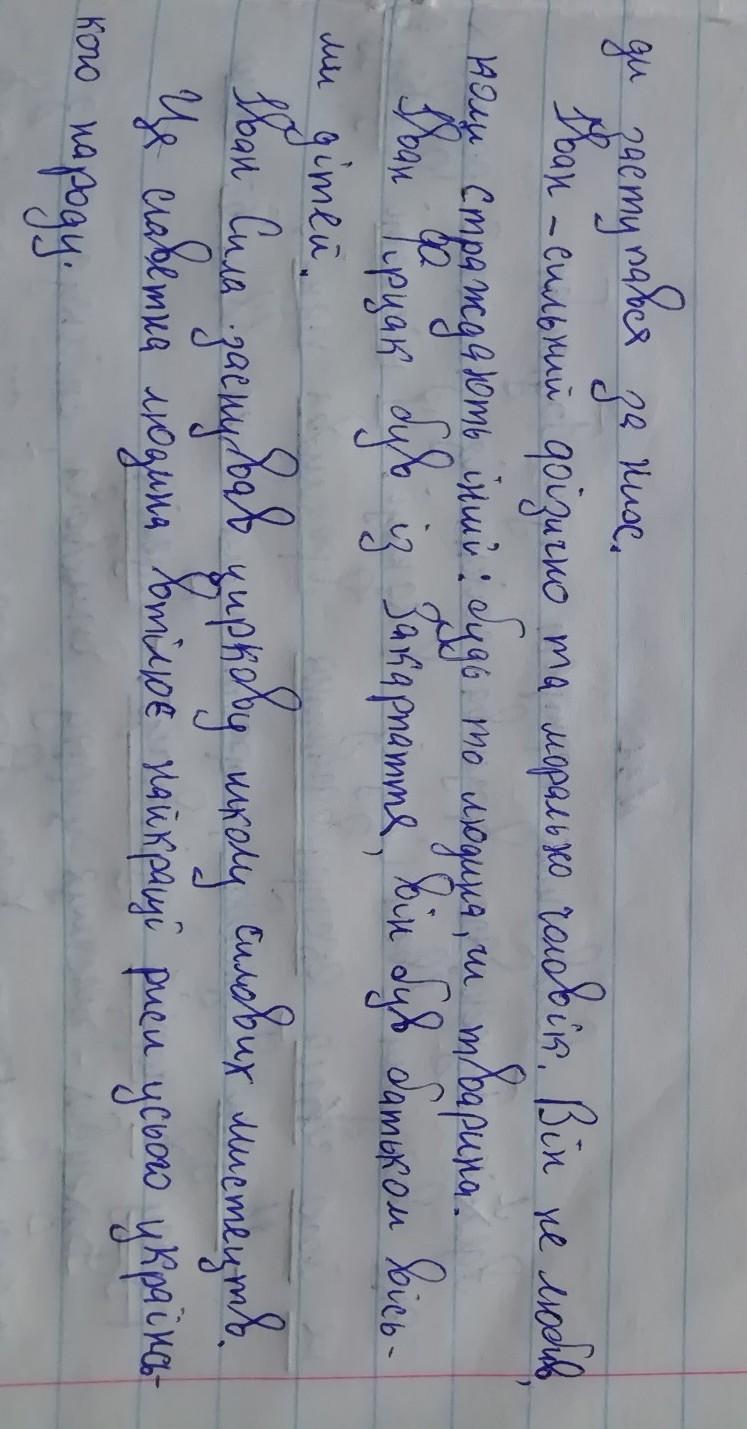 ди заступався за них.
Іван - сильний фізично та морально чоловік. Він не любив,
коли страждають інші: будь то людина, чи тварина.
Іван Фірцак був із Закарпаття, він був батьком вісь-
ми дітей.
Іван Сила заснував циркову школу силових мистецтв.
Це славетна людина втілює найкращі риси усього українсь-
кого народу.